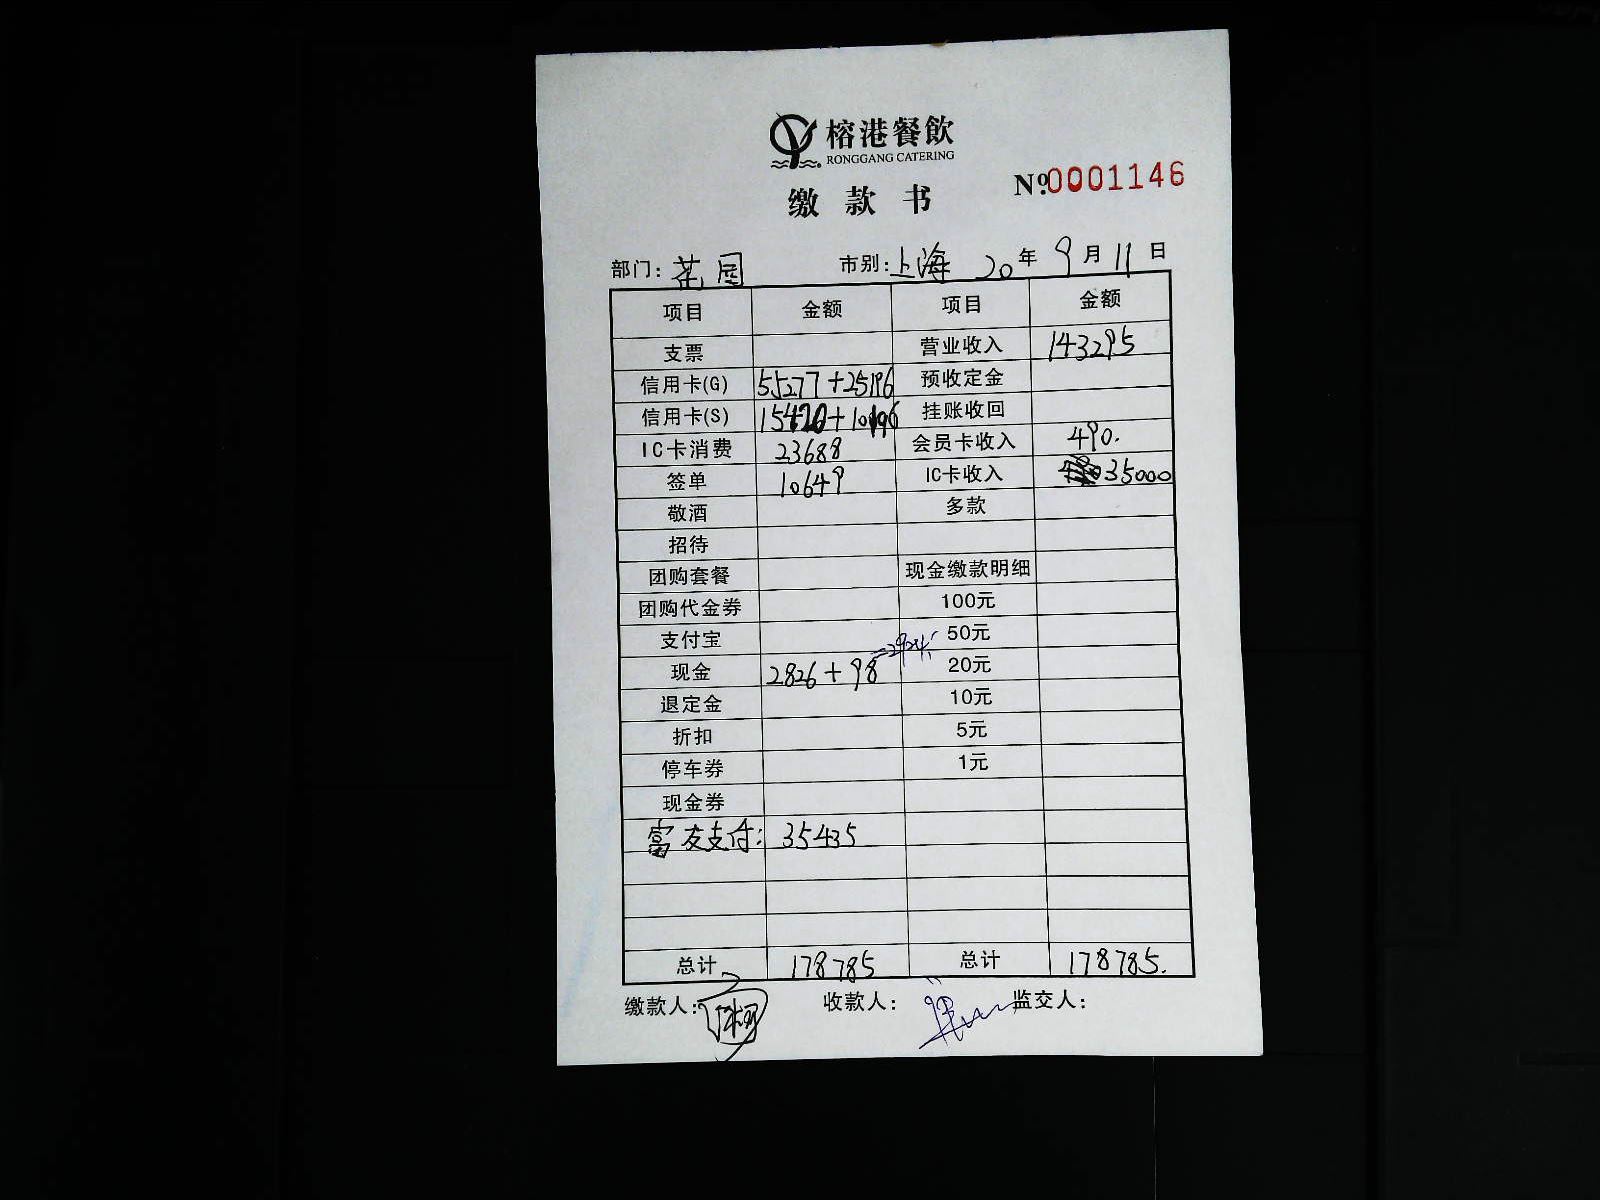 榕港餐飲
RONGGANG CATERING
缴款书 №0001146
部门: 花园 市别: 上海 20年9月11日
项目 金额 项目 金额
支票 营业收入 143295
信用卡(G) 55277+25196 预收定金
信用卡(S) 15420+10196 挂账收回
IC卡消费 23688 会员卡收入 490.
签单 10649 IC卡收入 35000
敬酒 多款
招待
团购套餐 现金缴款明细
团购代金券 100元
支付宝 50元
现金 2826+98 =2924 20元
退定金 10元
折扣 5元
停车券 1元
现金券
富友支付: 35435
总计 178785 总计 178785.
缴款人: 收款人: 监交人: